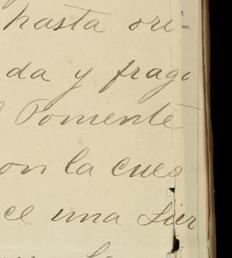 hasta ori-
da y frago
Pomente
on la cues
ce una Sier